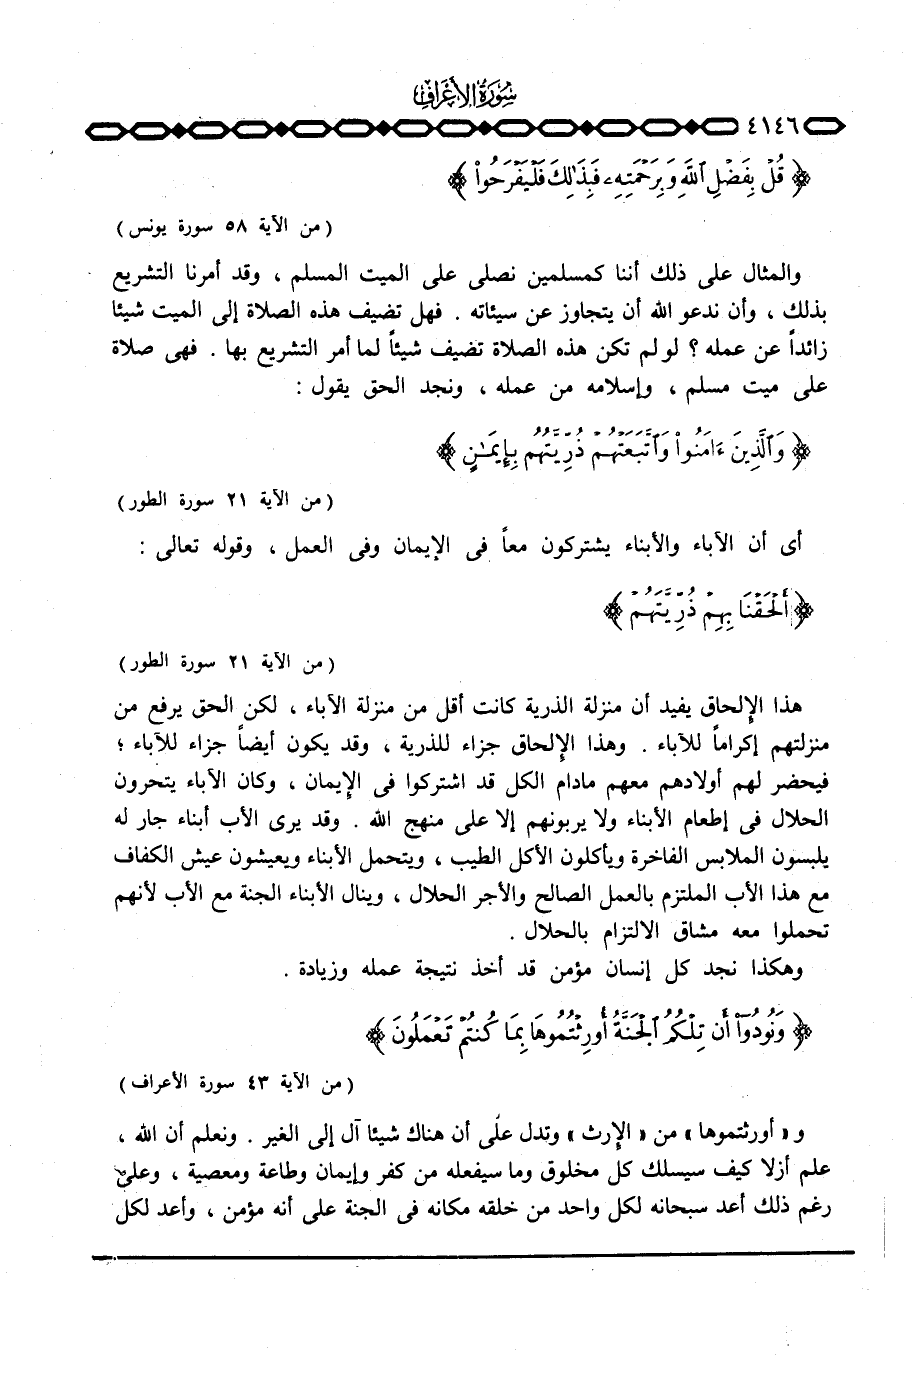 سورة الأعراف
٤١٤٦
﴿ قُلْ بِفَضْلِ ٱللَّهِ وَبِرَحْمَتِهِۦ فَبِذَٰلِكَ فَلْيَفْرَحُوا۟ ﴾
( من الآية ٥٨ سورة يونس )
والمثال على ذلك أننا كمسلمين نصلى على الميت المسلم ، وقد أمرنا التشريع
بذلك ، وأن ندعو الله أن يتجاوز عن سيئاته . فهل تضيف هذه الصلاة إلى الميت شيئا
زائداً عن عمله ؟ لو لم تكن هذه الصلاة تضيف شيئاً لما أمر التشريع بها . فهى صلاة
على ميت مسلم ، وإسلامه من عمله ، ونجد الحق يقول :
﴿ وَٱلَّذِينَ ءَامَنُوا۟ وَٱتَّبَعَتْهُمْ ذُرِّيَّتُهُم بِإِيمَٰنٍ ﴾
( من الآية ٢١ سورة الطور )
أى أن الآباء والأبناء يشتركون معاً فى الإيمان وفى العمل ، وقوله تعالى :
﴿ أَلْحَقْنَا بِهِمْ ذُرِّيَّتَهُمْ ﴾
( من الآية ٢١ سورة الطور )
هذا الإلحاق يفيد أن منزلة الذرية كانت أقل من منزلة الآباء ، لكن الحق يرفع من
منزلتهم إكراماً للآباء . وهذا الإلحاق جزاء للذرية ، وقد يكون أيضاً جزاء للآباء ؛
فيحضر لهم أولادهم معهم مادام الكل قد اشتركوا فى الإيمان ، وكان الآباء يتحرون
الحلال فى إطعام الأبناء ولا يربونهم إلا على منهج الله . وقد يرى الأب أبناء جار له
يلبسون الملابس الفاخرة ويأكلون الأكل الطيب ، ويتحمل الأبناء ويعيشون عيش الكفاف
مع هذا الأب الملتزم بالعمل الصالح والأجر الحلال ، وينال الأبناء الجنة مع الأب لأنهم
تحملوا معه مشاق الالتزام بالحلال .
وهكذا نجد كل إنسان مؤمن قد أخذ نتيجة عمله وزيادة .
﴿ وَنُودُوٓا۟ أَن تِلْكُمُ ٱلْجَنَّةُ أُورِثْتُمُوهَا بِمَا كُنتُمْ تَعْمَلُونَ ﴾
( من الآية ٤٣ سورة الأعراف )
و « أورثتموها » من « الإرث » وتدل على أن هناك شيئا آل إلى الغير . ونعلم أن الله ،
علم أزلا كيف سيسلك كل مخلوق وما سيفعله من كفر وإيمان وطاعة ومعصية ، وعلى
رغم ذلك أعد سبحانه لكل واحد من خلقه مكانه فى الجنة على أنه مؤمن ، وأعد لكل